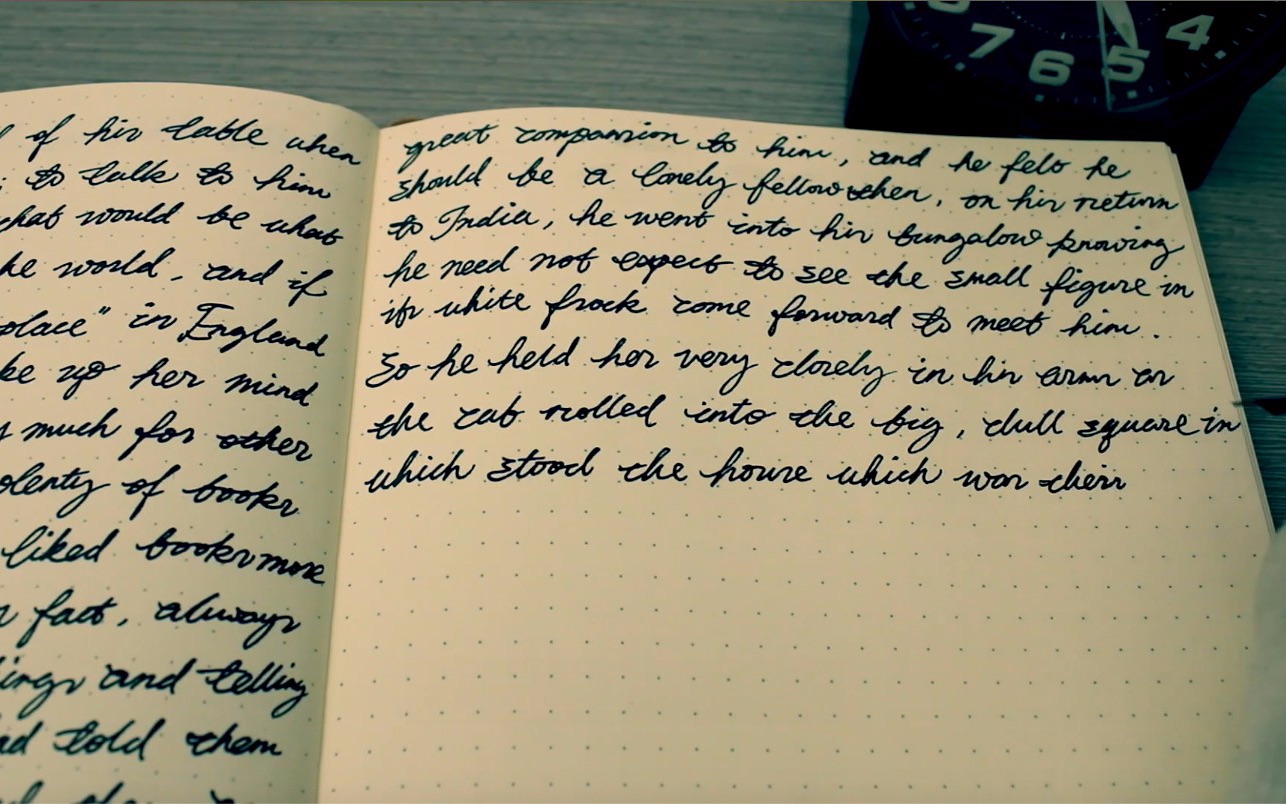 of his table when
to talk to him
what would be what
world, and if
place" in England
up her mind
much for other
plenty of books
liked books more
fact, always
and telling
told them
great companion to him, and he felt he
should be a lonely fellow when, on his return
to India, he went into his bungalow knowing
he need not expect to see the small figure in
its white frock come forward to meet him.
So he held her very closely in his arms as
the cab rolled into the big, dull square in
which stood the house which was their
7 6 5 4